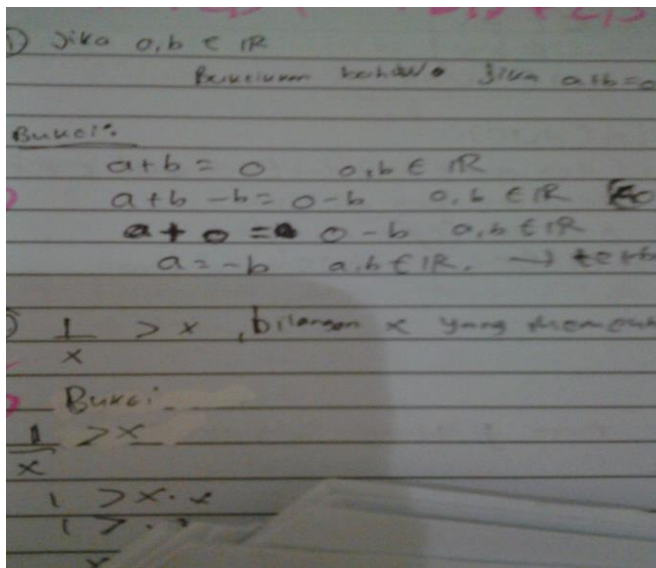 1) Jika a,b ∈ IR
Buktikan bahwa Jika a+b=0
Bukti:
a+b = 0 a,b ∈ IR
a+b -b = 0-b a,b ∈ IR
a + 0 = 0 - b a,b ∈ IR
a = -b a,b ∈ IR. →
1/x > x , bilangan x yang
Bukti
1/x > x
1 > x . x
1 >
x